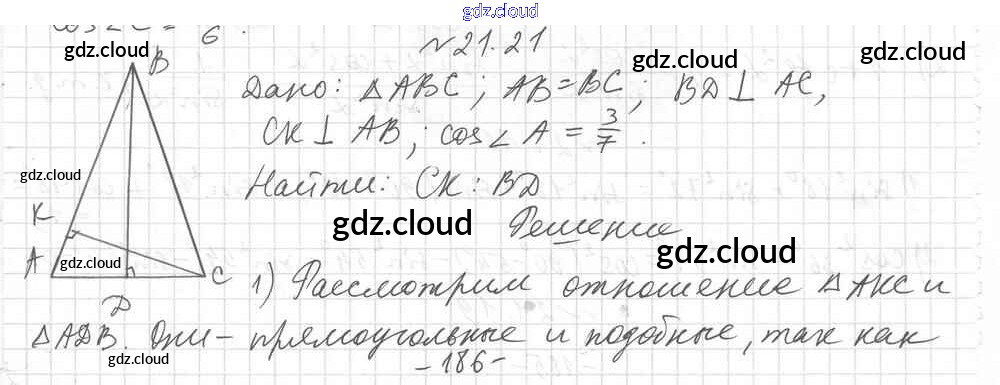 gdz.cloud
cos∠C = 6.
gdz.cloud
N 21.21
gdz.cloud
B
Дано: △ABC; AB=BC; BD⊥AC,
gdz.cloud
CK⊥AB; cos∠A = 3/7.
gdz.cloud
Найти: CK:BD
K
gdz.cloud
Решение
gdz.cloud
A
gdz.cloud
C
D
1) Рассмотрим отношение △AKC и
△ADB. Они - прямоугольные и подобные, так как
gdz.cloud
-186-
gdz.cloud